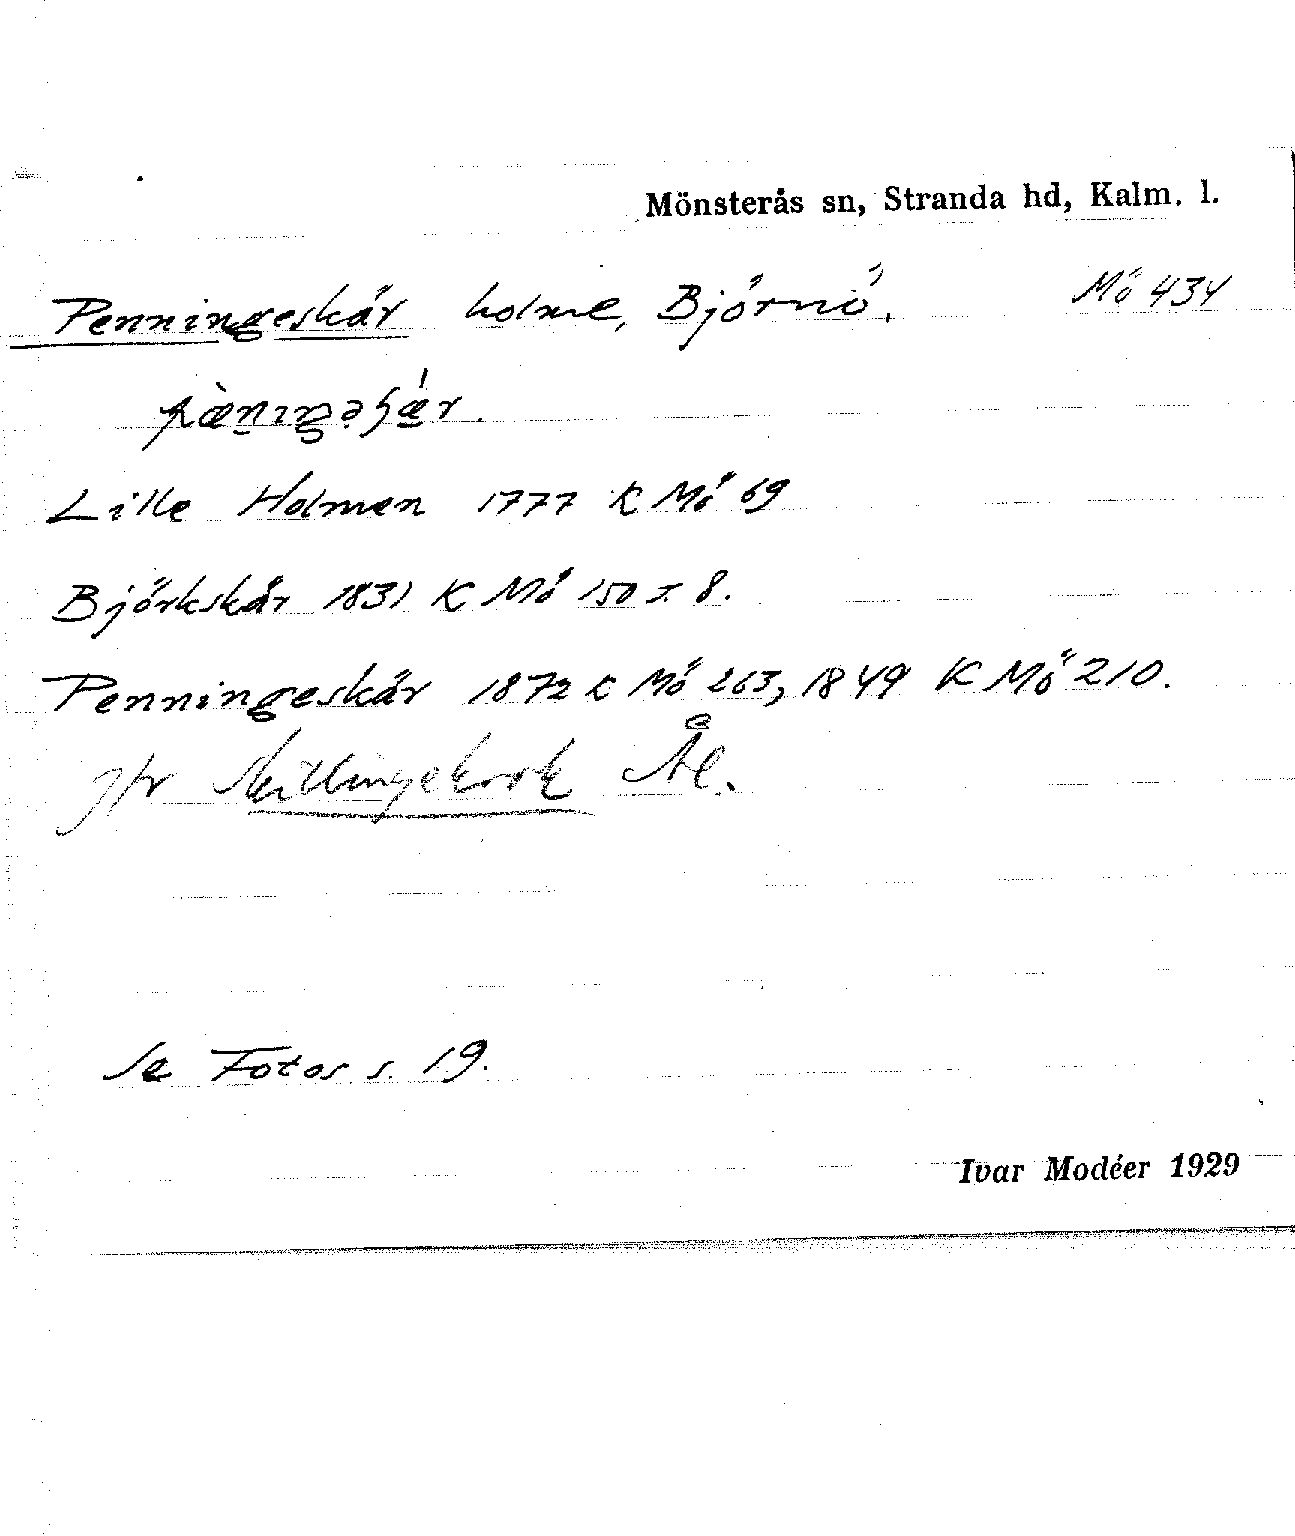 Mönsterås sn, Stranda hd, Kalm. l.
Penningeskär holme, Björnö. Mö 434
Lille Holmen 1777 K Mö 69
Björkskär 1831 K Mö 150 s. 8.
Penningeskär 1872 K Mö 263, 1849 K Mö 210.
jfr Skillingekrok Ål.
Se Fotos s. 19.
Ivar Modéer 1929